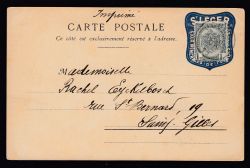 Imprimé
CARTE POSTALE
Ce côté est exclusivement réservé à l'adresse.
ST LEGER
Mademoiselle
Rachel Eyckelbosch
rue St Bernard, 19
Saint-Gilles